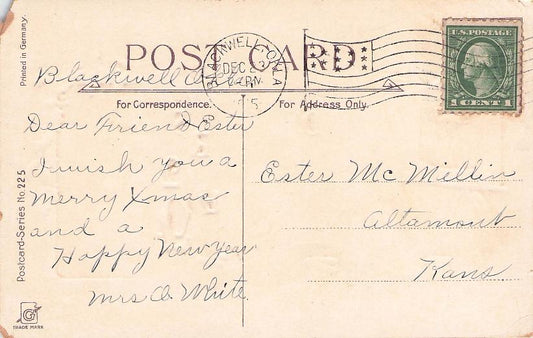 Printed in Germany.
POST CARD
U.S. POSTAGE
1 CENT 1
BLACKWELL OKLA
DEC
Blackwell
For Correspondence.
For Address Only.
Dear Friend Ester
I wish you a
Merry Xmas
and a
Happy New year
Mrs O. White.
Ester Mc Millin
Altamont
Kans
Postcard-Series No. 225
G
TRADE MARK